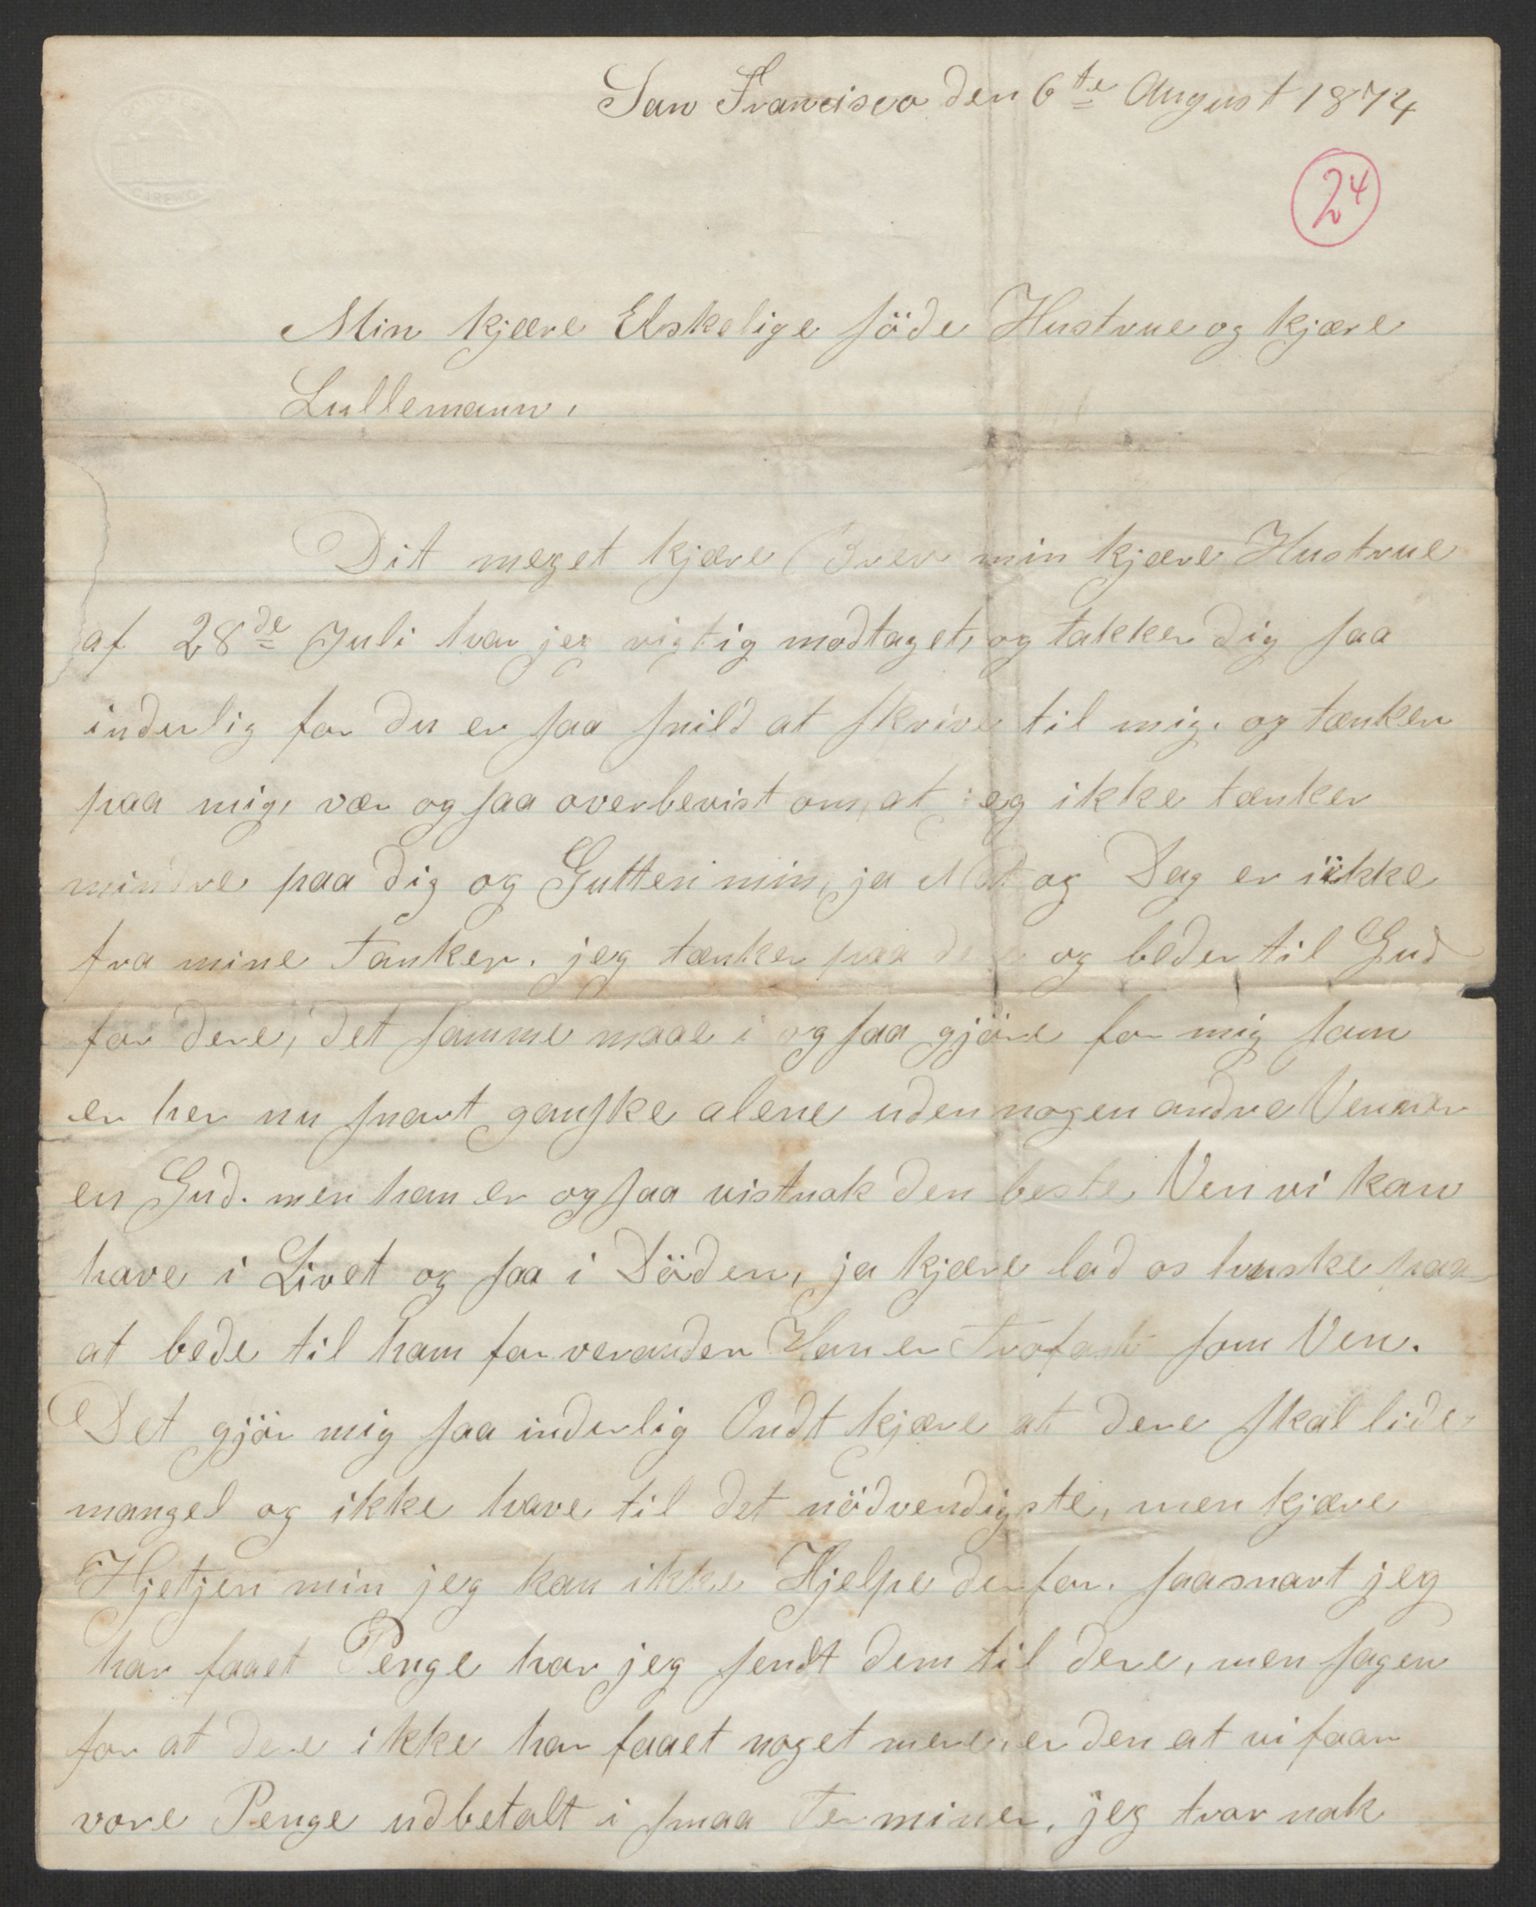 San Francisco den 6te August 1874
24
Min kjære Elskelige söde Hustrue og kjære
Lullemann,
Dit meget kjære Brev min kjære Hustrue
af 28de Juli har jeg rigtig modtaget, og takker dig saa
inderlig for du er saa snild at skrive til mig. og tænker
paa mig, vær og saa overbevist om, at jeg ikke tænker
mindre paa dig og Gutten min, ja Nat og Dag er i ikke
fra mine Tanker. jeg tænker paa dere og beder til Gud
for dere, det samme maae i og saa gjöre for mig som
er her nu snart ganske alene uden nogen andre Venner
en Gud. men han er og saa vistnok den beste Ven vi kan
have i Livet og saa i Döden, ja kjære lad os huske paa
at bede til ham for veranden Han er Trofast som Ven.
Det gjör mig saa inderlig Ondt kjære at dere skal lide
mangel og ikke have til det nödvendigste, men kjære
Hjetjen min jeg kan ikke Hjelpe derfor. saasnart jeg
har faaet Penge har jeg sendt dem til dere, men sagen
for at dere ikke har faaet noget mere, er den at vi faar
vore Penge udbetalt i smaa Terminer. jeg tror nok